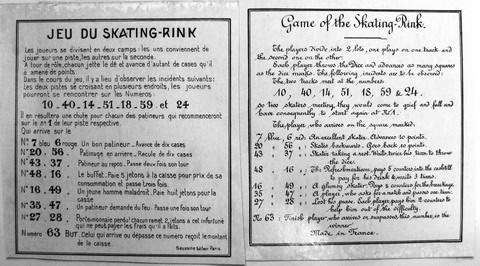 JEU DU SKATING-RINK
Les joueurs se divisent en deux camps: les uns conviennent de
jouer sur une piste, les autres sur la seconde.
A tour de rôle, chacun jette le dé et avance d'autant de cases qu'il
a amené de points.
Dans le cours du jeu, il y a lieu d'observer les incidents suivants:
Les deux pistes se croisant en plusieurs endroits, les joueurs
pourront se rencontrer sur les Numéros:
10-40-14-51-18-59 et 24
Il en résultera une chute pour chacun des patineurs qui recommenceront
sur le n° 1 de leur piste respective.
Qui arrive sur le
N° 7 bleu 6 rouge. Un bon patineur - Avance de dix cases
N° 20-56. Patineur en arrière - Recule de dix cases
N° 43-37. Patineur au repos - Passe deux fois son tour
N° 48-16. Le buffet. Paie 5 jetons à la caisse pour prix de sa
consommation et passe 1 fois.
N° 16.49. Un jeune homme maladroit. Paie huit jetons pour la
casse
N° 35.47. Un patineur demande du feu - Passe une fois son tour
N° 27-28. Portemonnaie perdu! Chaque remet 2 jetons à cet infortuné
qui ne peut payer les frais qu'il a faits.
Numéro 63 BUT. Celui qui arrive ou dépasse ce numéro reçoit le montant
de la caisse.
Paris
Game of the Skating-Rink.
The players divide into 2 lots, one plays on one track and
the second one on the other.
Each player throws the Dice and advances as many squares
as the dice marks. The following incidents are to be observed:
The two tracks meet at the numbers:
10, 40, 14, 51, 18, 59 & 24.
so two skaters meeting, they would come to grief and fall and
have consequently to start again at N°1.
The player who arrives on the square marked.
7 blue, 6 red: An excellent skater. Advances 10 points.
20 " 56, " Skates backwards. Goes back 10 points.
43 " 37, " Skater taking a rest. Waits twice his turn to throw
the dice.
48 " 16, " The Refreshments, pays 5 counters into the cashtill
to pay for his drink & waits 1 time.
16 " 49, " A glumsy Skater. Pays 8 counters for the breakage.
35 " 47, " A player who asks for a match and passes one turn.
27 " 28, " Lost his purse. Each player pays him 2 counters to
help him out of the difficulty.
N° 63: Finish player who arrives or surpasses, this number, is the
winner.
Made in France.